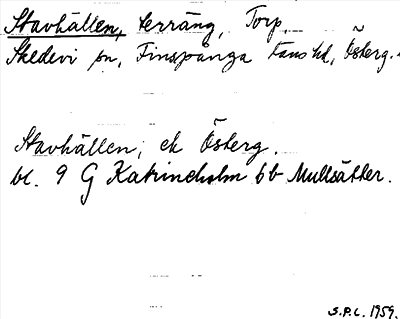 Stavhällen, terräng, Torp,
Skedevi sn, Finspånga läns hd, Österg.
Stavhällen, ek Österg.
bl. 9 G Katrineholm 6b Mullsätter.
S.P.C. 1959.